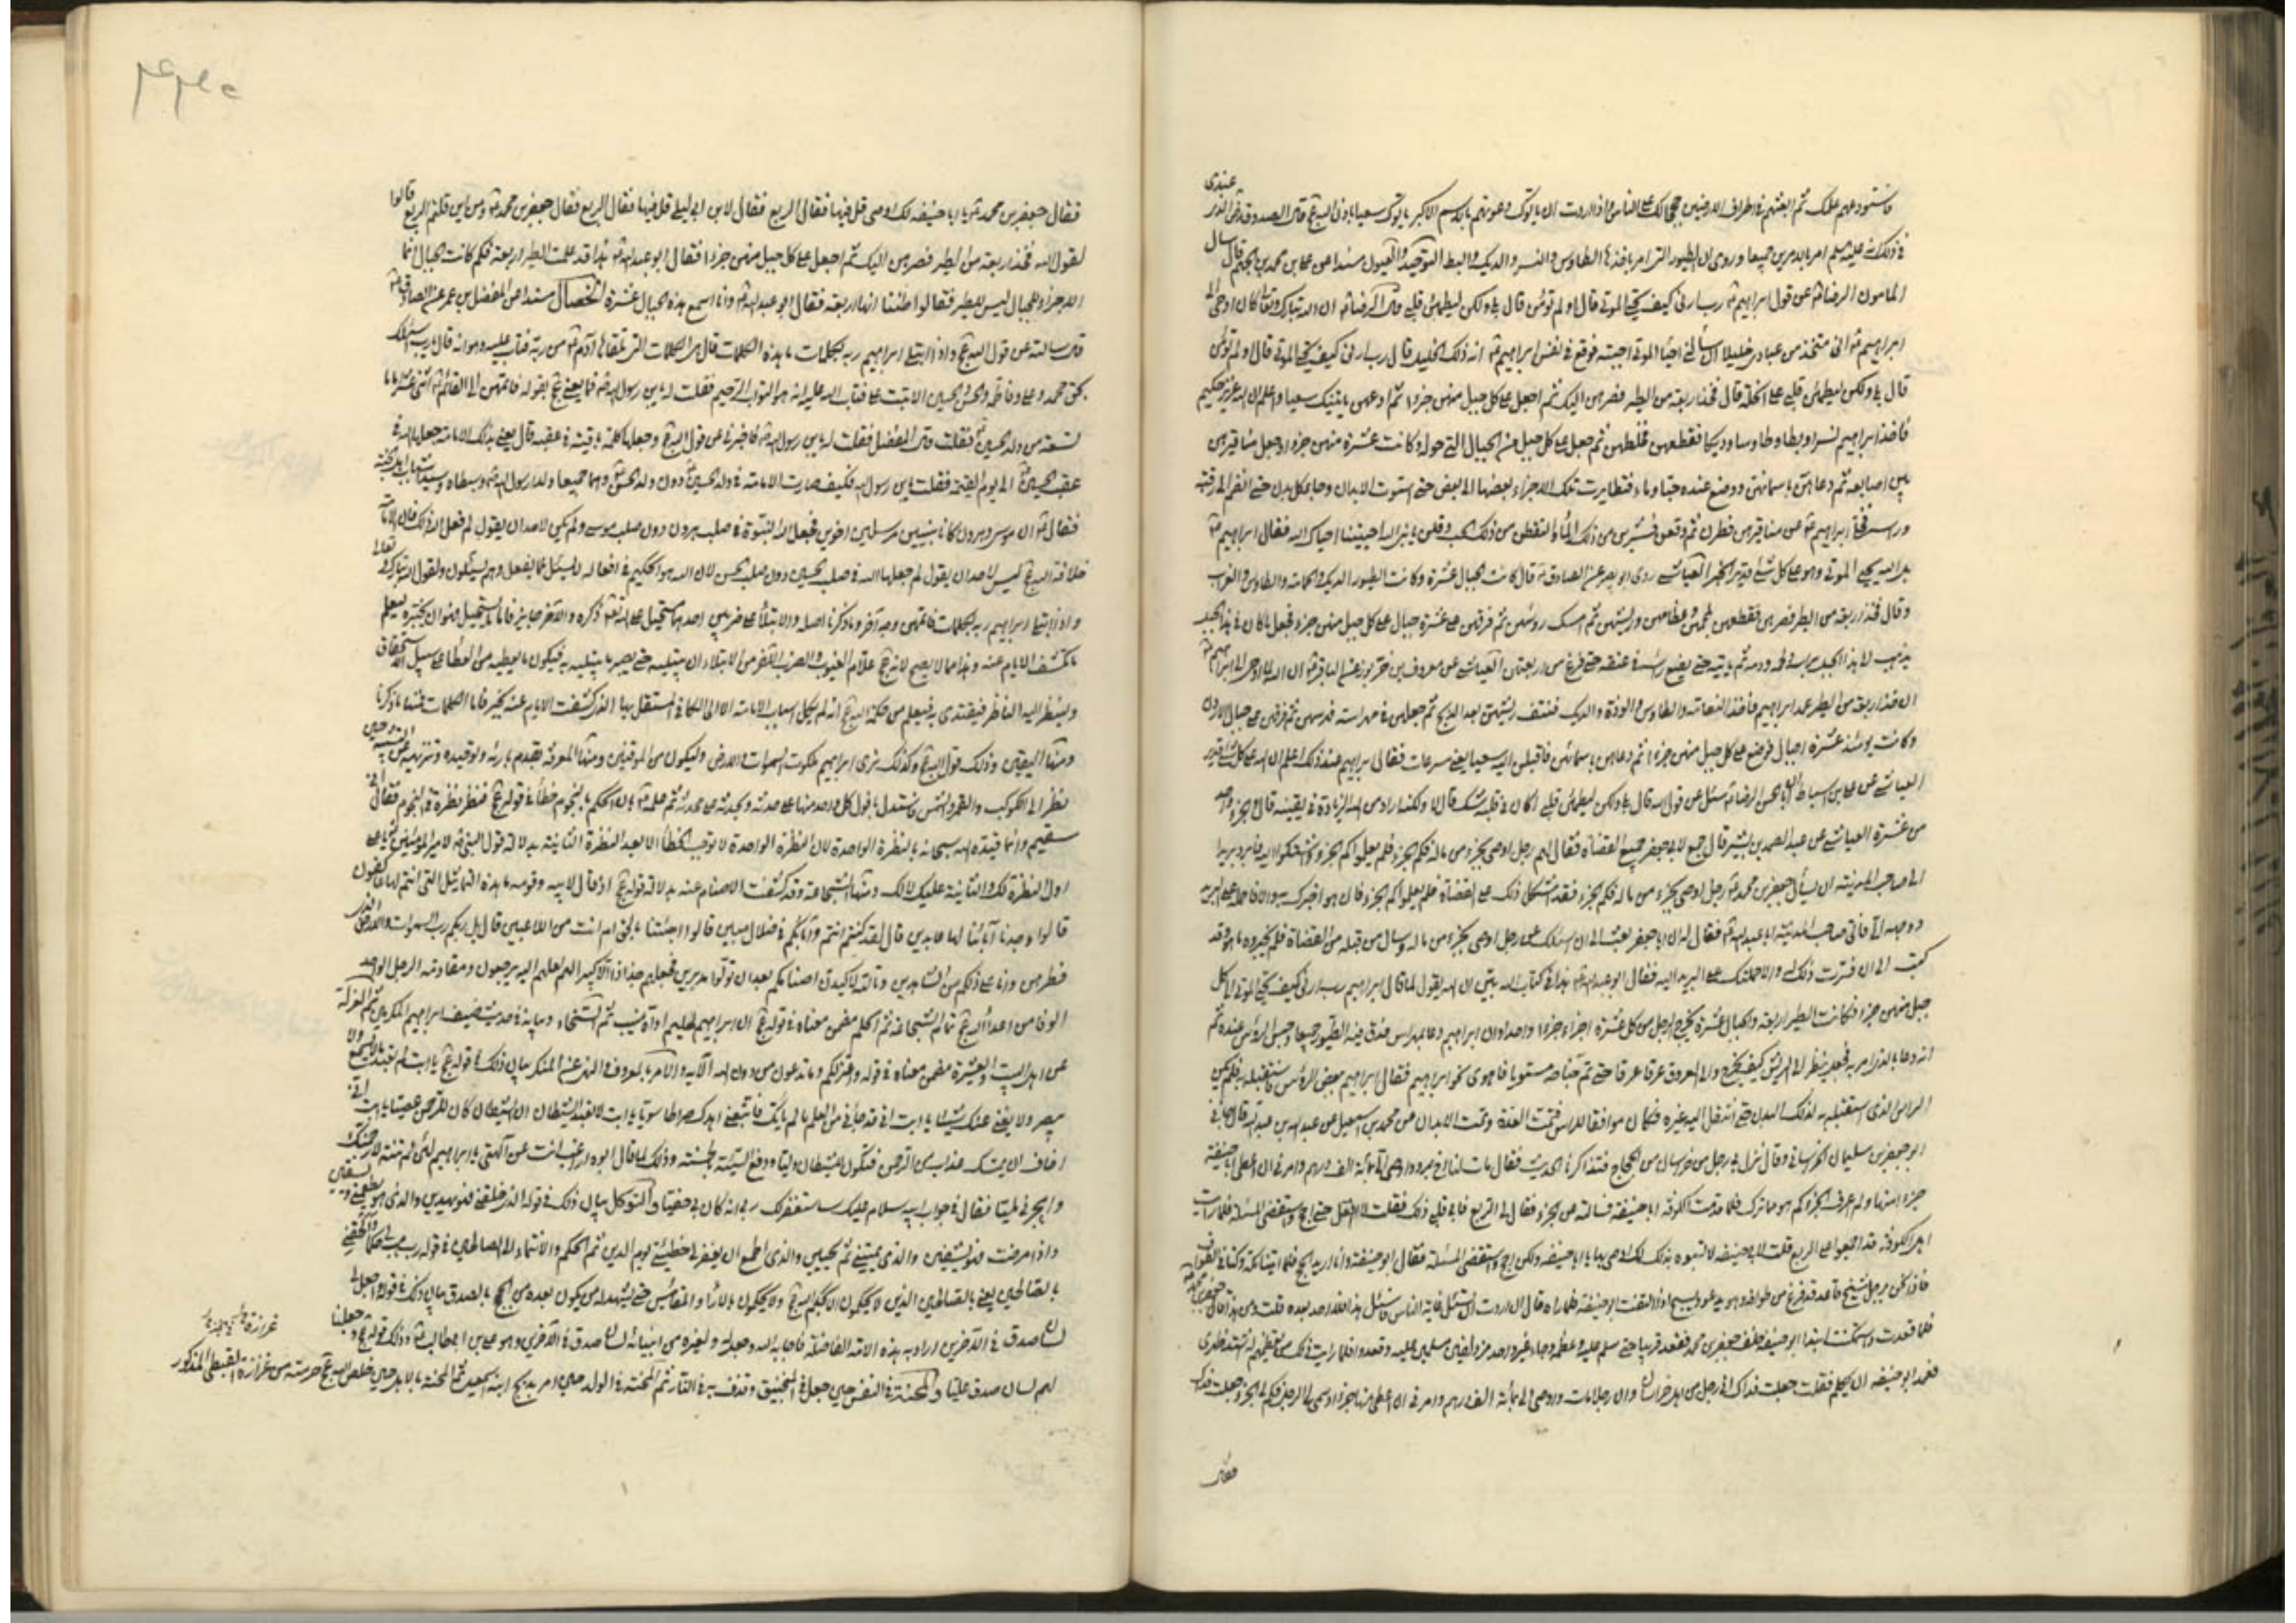 فاستودعهم علمك ثم ابعثهم في اطراف الارضين حججا لك على الناس واذا اردت ان ياتوك دعوتهم بالاسم الاكبر ياتونك سعيا باذن الله عج قال الصدوق
في ذلك انه عليه السلم امر بالامرين جميعا وروى ان الطيور التي امر باخذها الطاوس والنسر والديك والبط التوحيد والعيون مسندا عن علي بن محمد بن الجهم قال سال
المامون الرضا ع عن قول ابراهيم ع رب ارني كيف تحيي الموتى قال اولم تؤمن قال بلى ولكن ليطمئن قلبي قال الرضا ع ان الله تبارك وتعالى كان اوحى الى
ابراهيم ع اني متخذ من عبادي خليلا ان سألني احياء الموتى اجبته فوقع في نفس ابراهيم ع انه ذلك الخليل فقال رب ارني كيف تحيي الموتى قال اولم تؤمن
قال بلى ولكن ليطمئن قلبي على الخلة قال فخذ اربعة من الطير فصرهن اليك ثم اجعل على كل جبل منهن جزءا ثم ادعهن ياتينك سعيا واعلم ان الله عزيز حكيم
فاخذ ابراهيم نسرا وبطا وطاوسا وديكا فقطعهن فخلطهن ثم جعل على كل جبل من الجبال التي حوله وكانت عشرة منهن جزءا وجعل مناقيرهن
بين اصابعه ثم دعاهن باسمائهن ووضع عنده حبا وماء فتطايرت تلك الاجزاء بعضها الى بعض حتى استوت الابدان وجاء كل بدن حتى انضم الى رقبته
وراسه فخلى ابراهيم ع عن مناقيرهن فطرن ثم وقعن فشربن من ذلك الماء والتقطن من ذلك الحب وقلن يا نبي الله احييتنا احياك الله فقال ابراهيم ع
بل الله يحيي الموتى وهو على كل شئ قدير الخبر العياشي روى ابو بصير عن الصادق ع قال كانت الجبال عشرة وكانت الطيور الديك والحمامة والطاوس والغراب
وقال فخذ اربعة من الطير فصرهن فقطعهن بلحمهن وعظامهن وريشهن ثم امسك رؤسهن ثم فرقهن على عشرة جبال على كل جبل منهن جزء فجعل ما كان في هذا الجبل
يذهب الى هذا الجبل براسه ولحمه ودمه ثم ياتيه حتى يضع راسه في عنقه حتى فرغ من اربعتهن العياشي عن معروف بن خربوذ عن الباقر ع ان الله لما اوحى الى ابراهيم ع
ان خذ اربعة من الطير عمد ابراهيم فاخذ النعامة والطاوس والوزة والديك فنتف ريشهن بعد الذبح ثم جعلهن في مهراسة فهرسهن ثم فرقهن على جبال الاردن
وكانت يومئذ عشرة اجبال فوضع على كل جبل منهن جزءا ثم دعاهن باسمائهن فاقبلن اليه سعيا يعني مسرعات فقال ابراهيم عند ذلك اعلم ان الله على كل شئ قدير
العياشي عن علي بن اسباط ان ابا الحسن الرضا ع سئل عن قول الله قال بلى ولكن ليطمئن قلبي اكان في قلبه شك قال لا ولكنه اراد من الله الزيادة في يقينه قال والجزء واحد
من عشرة العياشي عن عبد الصمد بن بشير قال جمع لابي جعفر جميع القضاة فقال لهم رجل اوصى بجزء من ماله فكم الجزء فلم يعلموا كم الجزء واشتكوا اليه فابرد بريدا
الى صاحب المدينة ان يسأل جعفر بن محمد ع رجل اوصى بجزء من ماله فكم الجزء فقد اشكل ذلك على القضاة فلم يعلموا كم الجزء فان هو اخبرك به والا فاحمله على البريد
ووجهه الي فاتى صاحب المدينة ابا عبد الله ع فقال له ان ابا جعفر بعث الي ان اسئلك عن رجل اوصى بجزء من ماله وسأل من قبله من القضاة فلم يخبروه ما هو وقد
كتب الي ان فسرت ذلك له والا حملتك على البريد اليه فقال ابو عبد الله ع هذا في كتاب الله بين ان الله يقول لما قال ابراهيم رب ارني كيف تحيي الموتى الى كل
جبل منهن جزءا فكانت الطير اربعة والجبال عشرة يخرج الرجل من كل عشرة اجزاء جزءا واحدا وان ابراهيم دعا بمهراس فدق فيه الطيور جميعا وحبس الرؤس عنده ثم
انه دعا بالذي امر به فجعل ينظر الى الريش كيف يخرج والى العروق عرقا عرقا حتى تم جناحه مستويا فاهوى نحو ابراهيم فقال ابراهيم ببعض الرؤس فاستقبله به فلم يكن
الراس الذي استقبله به لذلك البدن حتى انتقل اليه غيره فكان موافقا للراس فتمت العدة وتمت الابدان عن محمد بن اسمعيل عن عبد الله بن عبد الله قال جاءني
ابو جعفر بن سليمان الخراساني وقال نزل بي رجل من خراسان من الحجاج فتذاكرنا الحديث فقال مات لنا اخ بمرو واوصى الي بمائة الف درهم وامرني ان اعطي ابا حنيفة
جزءا منها ولم اعرف الجزء كم هو مما ترك فلما قدمت الكوفة اتيت ابا حنيفة فسالته عن الجزء فقال لي الربع فابى قلبي ذلك فقلت لا افعل حتى احج واستقصي المسئلة فلما رايت
اهل الكوفة قد اجمعوا على الربع قلت لابي حنيفة لا سوءة بذلك لك اوصى بها يا ابا حنيفة ولكن احج واستقصي المسئلة فقال ابو حنيفة وانا اريد الحج فلما اتينا مكة وكنا في الطواف
فاذا نحن برجل شيخ قاعد قد فرغ من طوافه وهو يدعو ويسبح اذ التفت ابو حنيفة فلما راه قال ان اردت ان تسئل غاية الناس فاسئل هذا فلا احد بعده قلت ومن هذا قال جعفر بن محمد
فلما قعدت واستمكنت استدار ابو حنيفة خلف جعفر بن محمد فقعد قريبا مني فسلم عليه وعظمه وجاء غير واحد مزدلفين مسلمين عليه وقعدوا فلما رايت ذلك من تعظيمهم له اشتد ظهري
فغمزني ابو حنيفة ان تكلم فقلت جعلت فداك اني رجل من اهل خراسان وان رجلا مات واوصى الي بمائة الف درهم وامرني ان اعطي منها جزءا وسمى لي الرجل فكم الجزء جعلت فداك
فقال
فقال جعفر بن محمد ع يا ابا حنيفة لك اوصى قل فيها فقال الربع فقال لابن ابي ليلى قل فيها فقال الربع فقال جعفر بن محمد ع ومن اين قلتم الربع قالوا
لقول الله فخذ اربعة من الطير فصرهن اليك ثم اجعل على كل جبل منهن جزءا فقال ابو عبد الله ع هذا قد علمت الطير اربعة فكم كانت الجبال انما
الاجزاء للجبال ليس للطير فقالوا ظننا انها اربعة فقال ابو عبد الله ع ولكن الجبال عشرة الخصال مسندا عن المفضل بن عمر عن الصادق ع
قال سالته عن قول الله عج واذ ابتلى ابراهيم ربه بكلمات ما هذه الكلمات قال هي الكلمات التي تلقاها آدم ع من ربه فتاب عليه وهو انه قال يا رب اسئلك
بحق محمد وعلي وفاطمة والحسن والحسين الا تبت علي فتاب الله عليه انه هو التواب الرحيم فقلت له يابن رسول الله ع فما يعني عج بقوله فاتمهن قال فاتمهن الى القائم ع اثنى عشر اماما
تسعة من ولد الحسين ع قال المفضل فقلت له يابن رسول الله ع فاخبرني عن قول الله عج وجعلها كلمة باقية في عقبه قال يعني بذلك الامامة جعلها الله في
عقب الحسين ع الى يوم القيمة فقلت يابن رسول الله فكيف صارت الامامة في ولد الحسين ع دون ولد الحسن ع وهما جميعا ولدا رسول الله ع وسبطاه وسيدا شباب اهل الجنة
فقال ع ان موسى وهرون كانا نبيين مرسلين اخوين فجعل الله النبوة في صلب هرون دون صلب موسى ولم يكن لاحد ان يقول لم فعل الله ذلك فان الامامة
خلافة الله عج ليس لاحد ان يقول لم جعلها الله في صلب الحسين دون صلب الحسن لان الله هو الحكيم في افعاله لا يسئل عما يفعل وهم يسئلون ولقول الله تبارك وتعالى
واذ ابتلى ابراهيم ربه بكلمات فاتمهن وجه آخر وما ذكرناه اصله والابتلاء على ضربين احدهما مستحيل على الله تعالى ذكره والآخر جايز فاما ما يستحيل فهو ان يختبره ليعلم
ما تكشف الايام عنه وهذا ما لا يصح لانه عج علام الغيوب والضرب الآخر من الابتلاء ان يبتليه حتى يصبر فيما يبتليه به فيكون ما يعطيه من العطاء على سبيل الاستحقاق
ولينظر اليه الناظر فيقتدي به فيعلم من حكمة الله عج انه لم يكل اسباب الامامة الا الى الكافي المستقل بها الذي كشفت الايام عنه بخير فاما الكلمات فمنها ما ذكرنا
ومنها اليقين وذلك قول الله عج وكذلك نري ابراهيم ملكوت السموات والارض وليكون من الموقنين ومنها المعرفة بقدم باريه وتوحيده وتنزيهه عن التشبيه حين
نظر الى الكوكب والقمر والشمس فاستدل بافول كل واحد منها على حدثه وبحدثه على محدثه ثم علمه ع بان الحكم بالنجوم خطأ في قوله عج فنظر نظرة في النجوم فقال اني
سقيم وانما قيده الله سبحانه بالنظرة الواحدة لان النظرة الواحدة لا توجب الخطأ الا بعد النظرة الثانية بدلالة قول النبي ع لامير المؤمنين يا علي
اول النظرة لك والثانية عليك لا لك ومنها الشجاعة وقد كشفت الاصنام عنه بدلالة قوله عج اذ قال لابيه وقومه ما هذه التماثيل التي انتم لها عاكفون
قالوا وجدنا آبائنا لها عابدين قال لقد كنتم انتم وآباؤكم في ضلال مبين قالوا اجئتنا بالحق ام انت من اللاعبين قال بل ربكم رب السموات والارض الذي
فطرهن وانا على ذلكم من الشاهدين وتالله لاكيدن اصنامكم بعد ان تولوا مدبرين فجعلهم جذاذا الا كبيرا لهم لعلهم اليه يرجعون ومقاومة الرجل الواحد
الوفا من اعداء الله عج تمام الشجاعة ثم الحلم مضمن معناه في قوله عج ان ابراهيم لحليم اواه منيب ثم السخاء وبيانه في حديث ضيف ابراهيم المكرمين ثم العزلة
عن اهل البيت والعشيرة مضمن معناه في قوله واعتزلكم وما تدعون من دون الله الآية والامر بالمعروف والنهي عن المنكر بيان ذلك في قوله عج يا ابت لم تعبد ما لا يسمع ولا
يبصر ولا يغني عنك شيئا يا ابت اني قد جاءني من العلم ما لم ياتك فاتبعني اهدك صراطا سويا يا ابت لا تعبد الشيطان ان الشيطان كان للرحمن عصيا يا ابت اني
اخاف ان يمسك عذاب من الرحمن فتكون للشيطان وليا ودفع السيئة بالحسنة وذلك لما قال ابوه اراغب انت عن آلهتي يا ابراهيم لئن لم تنته لارجمنك
واهجرني مليا فقال في جواب ابيه سلام عليك ساستغفر لك ربي انه كان بي حفيا والتوكل بيان ذلك في قوله الذي خلقني فهو يهدين والذي هو يطعمني ويسقين
واذا مرضت فهو يشفين والذي يميتني ثم يحيين والذي اطمع ان يغفر لي خطيئتي يوم الدين ثم الحكم والانتماء الى الصالحين في قوله رب هب لي حكما والحقني
بالصالحين يعني بالصالحين الذين لا يحكمون الا بحكم الله عج ولا يحكمون بالآراء والمقائيس حتى يشهد له من يكون بعده من الحجج بالصدق بيان ذلك في قوله واجعل لي
لسان صدق في الآخرين اراد به هذه الامة الفاضلة فاجابه الله وجعل له ولغيره من انبيائه لسان صدق في الآخرين وهو علي بن ابيطالب ع وذلك قوله عج وجعلنا
لهم لسان صدق عليا والمحنة في النفس حين جعل في المنجنيق وقذف به في النار ثم المحنة في الولد حين امر بذبح ابنه اسمعيل ثم المحنة بالاهل حين خلص الله عج حرمته من عرازة القبطي المذكور